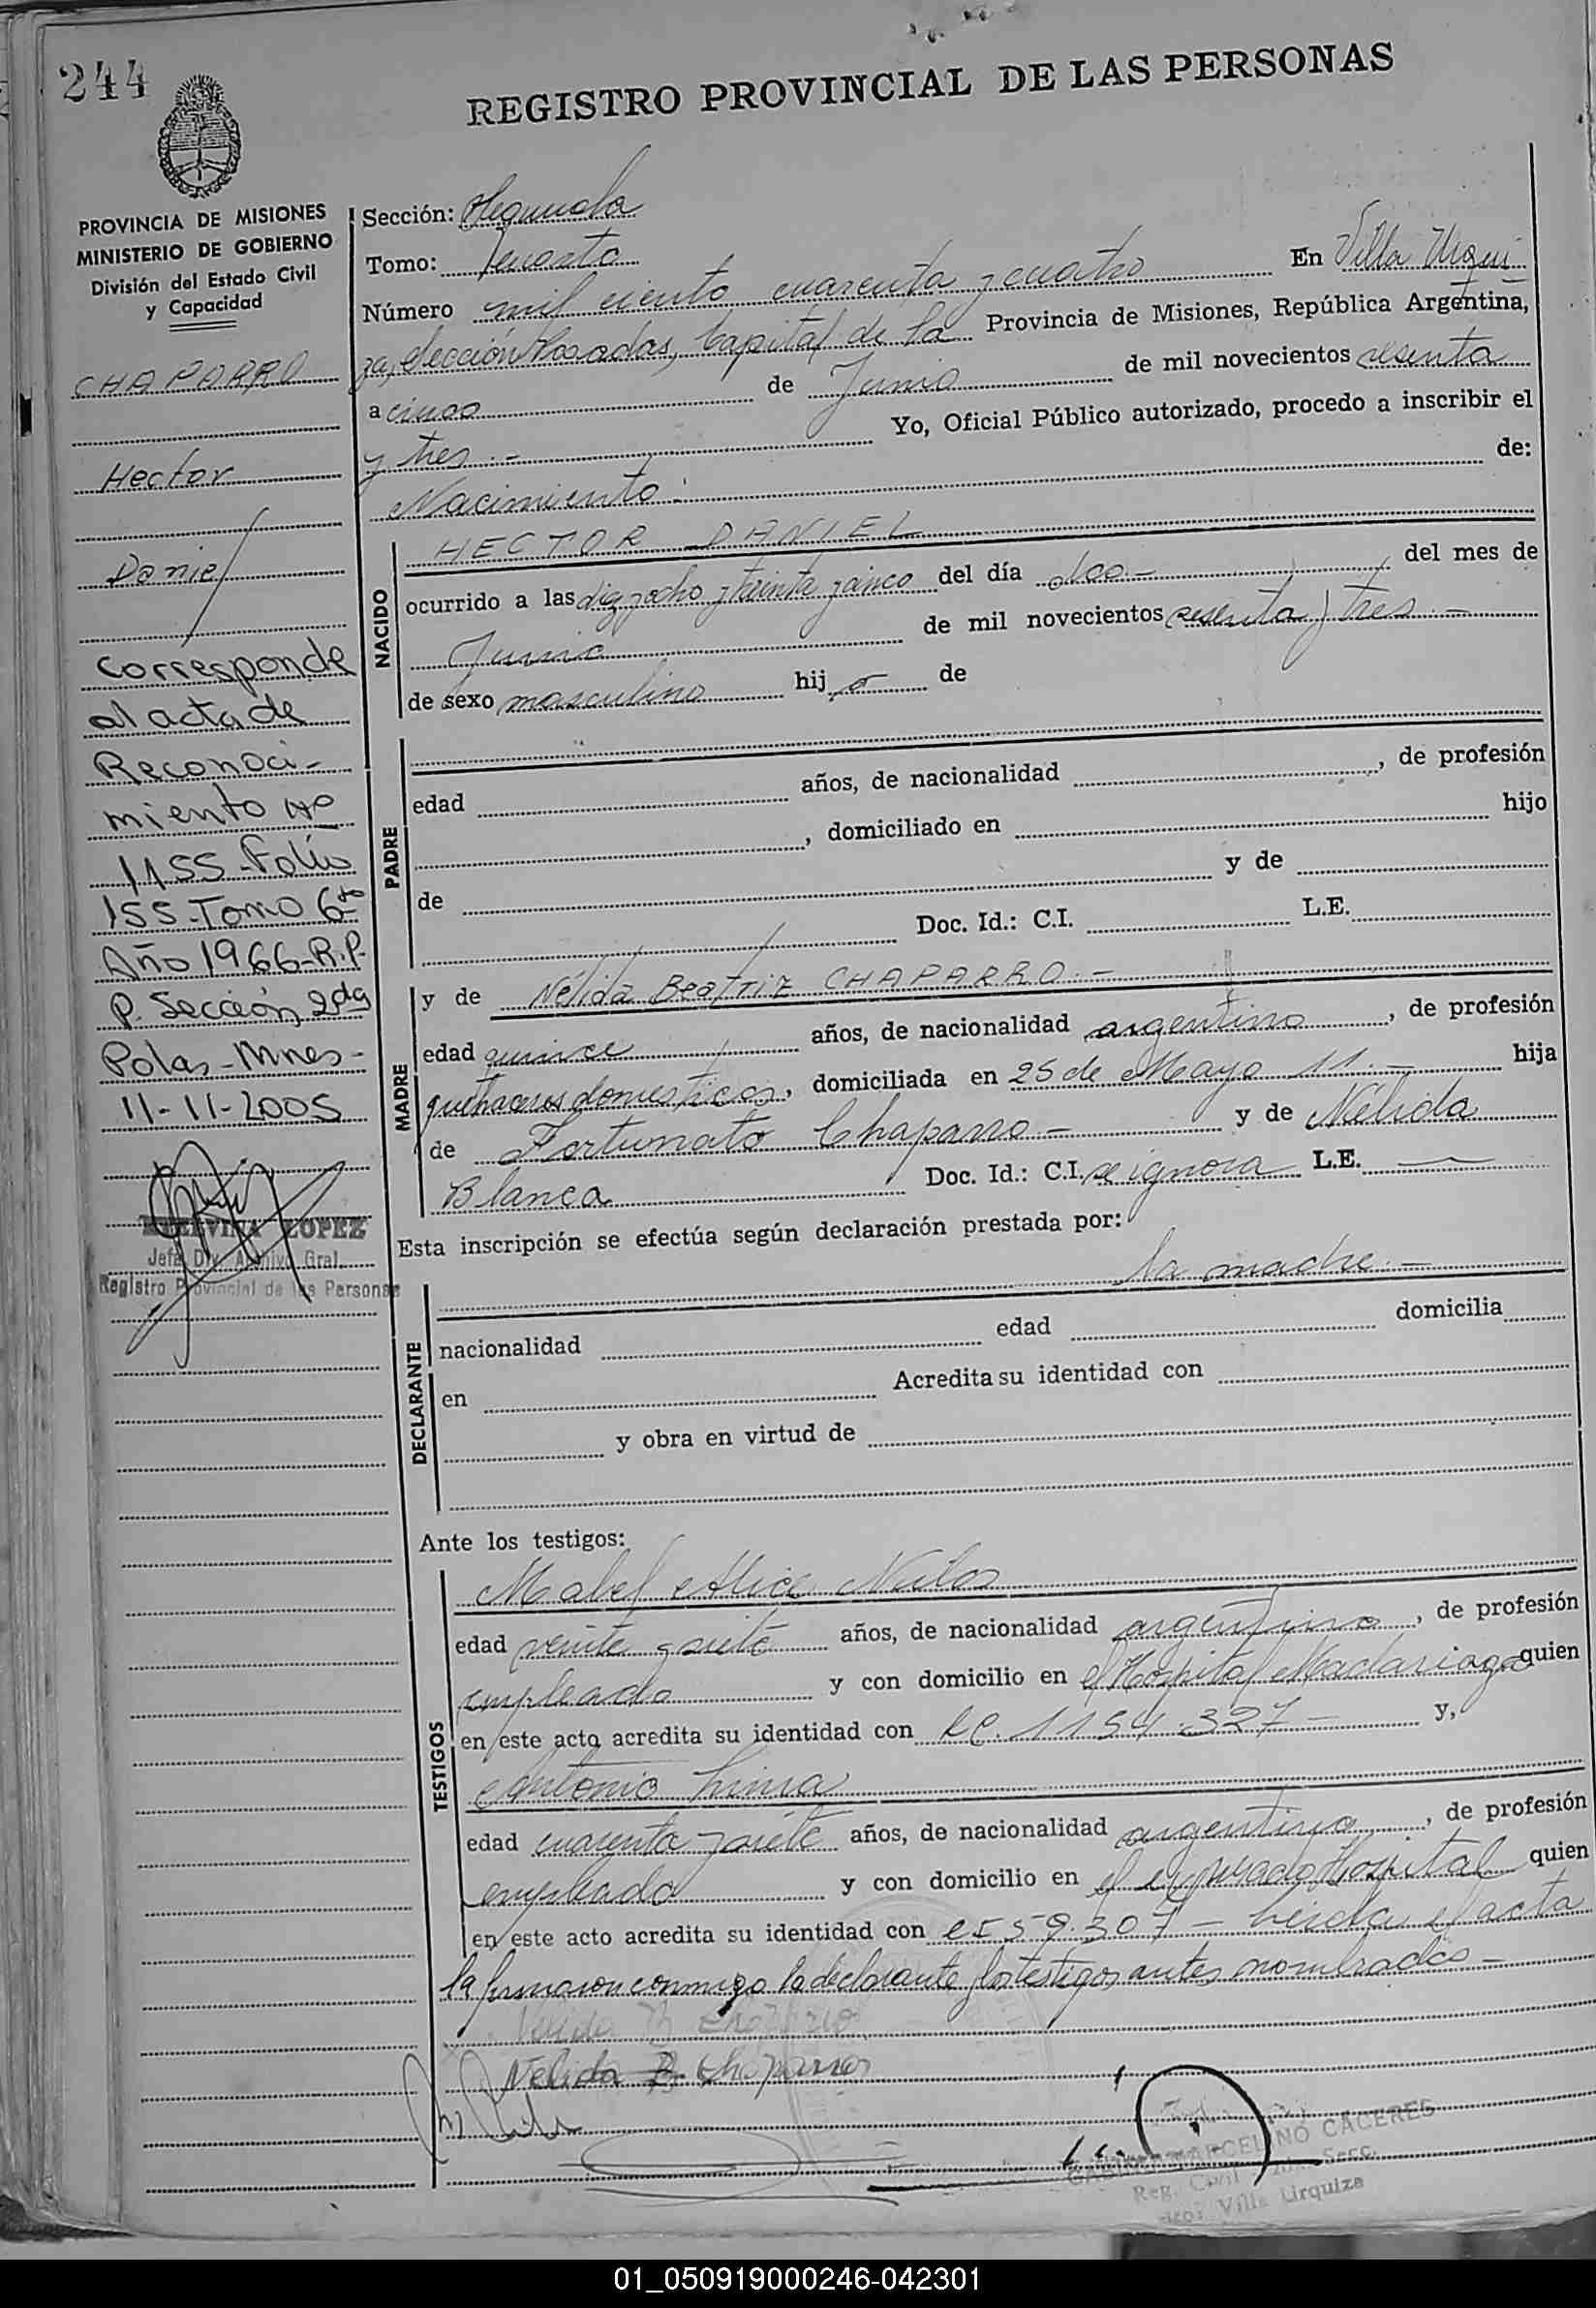 244
REGISTRO PROVINCIAL DE LAS PERSONAS
PROVINCIA DE MISIONES
MINISTERIO DE GOBIERNO
División del Estado Civil
y Capacidad
CHAPARRO
Hector
Daniel
Corresponde
al acta de
Reconoci-
miento Nº
1155-Folio
155-Tomo 6to
Año 1966-R.P.
P. Sección 2da
Posadas-Mnes-
11-11-2005
LOPEZ
Jefa Div. Archivo Gral.
Registro Provincial de las Personas
Sección: Segunda
Tomo: Cuarto
Número mil ciento cuarenta y cuatro En Villa Urqui
za, Sección Posadas, Capital de la Provincia de Misiones, República Argentina,
a cinco de Junio de mil novecientos sesenta
y tres.- Yo, Oficial Público autorizado, procedo a inscribir el
Nacimiento: de:
NACIDO
HECTOR DANIEL
ocurrido a las diez y ocho y treinta y cinco del día dos- del mes de
Junio de mil novecientos sesenta y tres.-
de sexo masculino hij o de
PADRE
edad años, de nacionalidad , de profesión
, domiciliado en hijo
de y de
Doc. Id.: C.I. L.E.
MADRE
y de Nélida Beatriz CHAPARRO.-
edad quince años, de nacionalidad argentina , de profesión
quehaceres domesticos, domiciliada en 25 de Mayo 11.- hija
de Fortunato Chaparro- y de Nélida
Blanca Doc. Id.: C.I. se ignora L.E. —
Esta inscripción se efectúa según declaración prestada por:
la madre.-
DECLARANTE
nacionalidad edad domicilia
en Acredita su identidad con
y obra en virtud de
Ante los testigos:
TESTIGOS
Mabel Alice
edad veinte y siete años, de nacionalidad argentina , de profesión
empleada y con domicilio en el Hospital Madariaga quien
en este acto acredita su identidad con LC. 1154.327- y,
Antonio Lima
edad cuarenta y siete años, de nacionalidad argentina , de profesión
empleado y con domicilio en el expresado Hospital quien
en este acto acredita su identidad con 559.307- Leida el acta
la firmaron conmigo la declarante y los testigos antes nombrados-
Nelida B Chaparro
Nelida B Chaparro
MARCELINO CACERES
Reg. Civil Secc.
Villa Urquiza
01_050919000246-042301